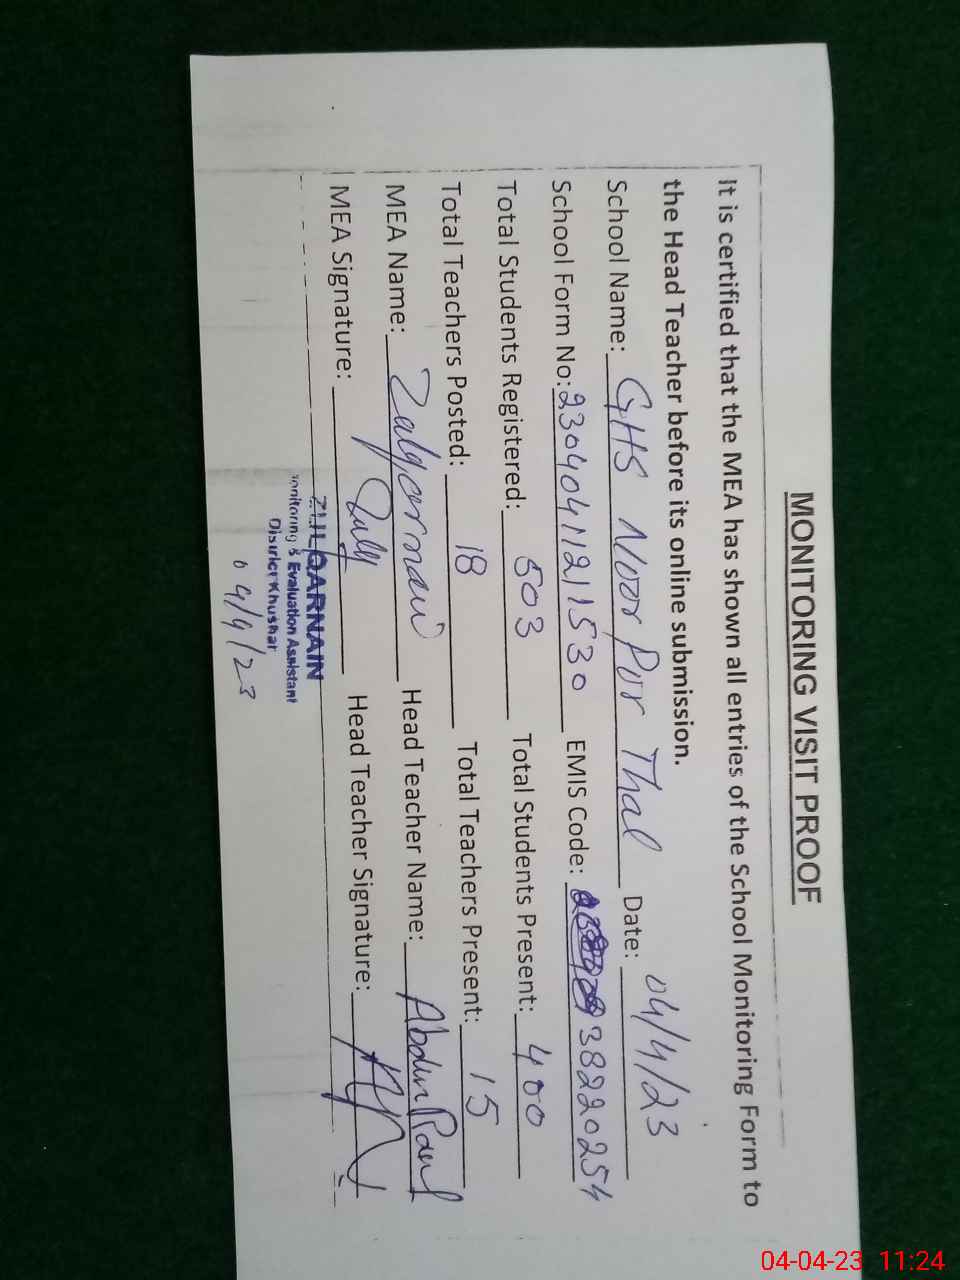 MONITORING VISIT PROOF
It is certified that the MEA has shown all entries of the School Monitoring Form to
the Head Teacher before its online submission.
School Name: GHS Noor Pur Thal Date: 04/4/23
School Form No: 23040411211530 EMIS Code: 38220254
Total Students Registered: 503 Total Students Present: 400
Total Teachers Posted: 18 Total Teachers Present: 15
MEA Name: Zulqarnain Head Teacher Name: Abdur Rauf
MEA Signature: Head Teacher Signature:
ZULQARNAIN
onitoring & Evaluation Assistant
District Khushab
04/4/23
04-04-23 11:24